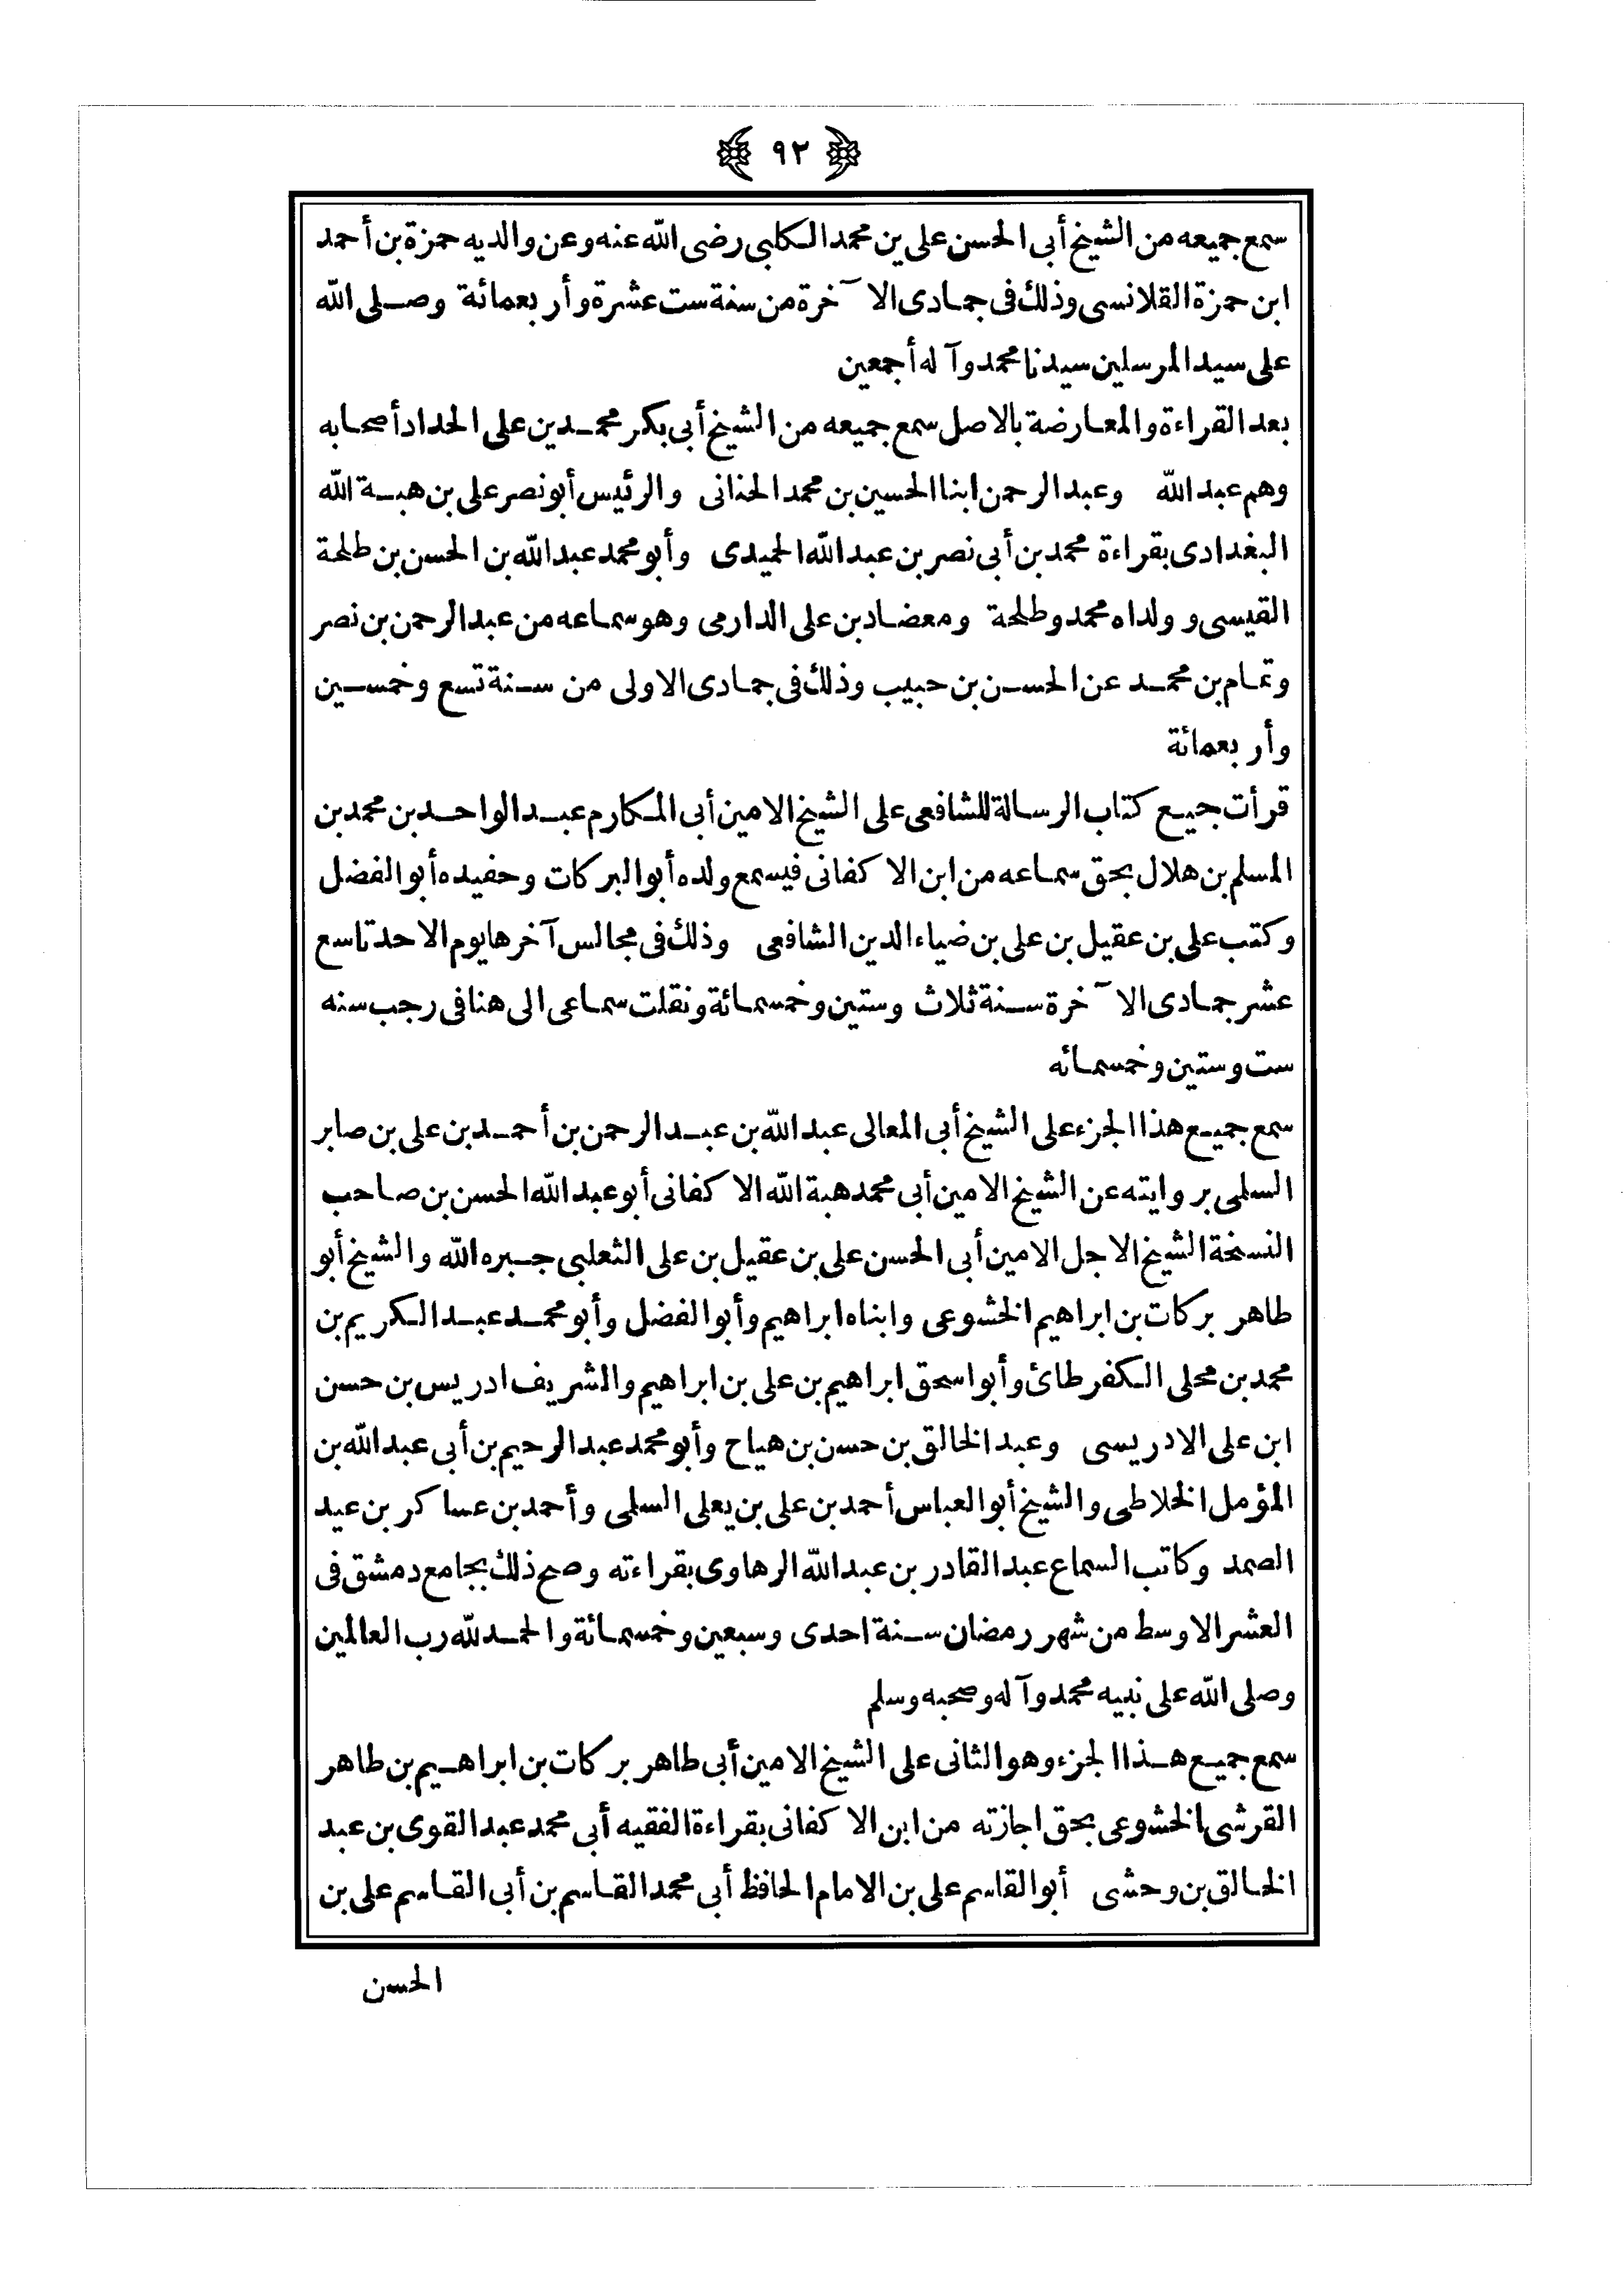 ﴿ ٩٢ ﴾
سمع جميعه من الشيخ أبى الحسن على بن محمد الكلبى رضى الله عنه وعن والديه حمزة بن أحمد
ابن حمزة القلانسى وذلك فى جمادى الآخرة من سنة ست عشرة وأربعمائة وصلى الله
على سيد المرسلين سيدنا محمد وآله أجمعين
بعد القراءة والمعارضة بالاصل سمع جميعه من الشيخ أبى بكر محمد بن على الحداد أصحابه
وهم عبد الله وعبد الرحمن ابنا الحسين بن محمد الحنانى والرئيس أبو نصر على بن هبة الله
البغدادى بقراءة محمد بن أبى نصر بن عبد الله الحميدى وأبو محمد عبد الله بن الحسن بن طلحة
القيسى وولداه محمد وطلحة ومعضاد بن على الدارمى وهو سماعه من عبد الرحمن بن نصر
وتمام بن محمد عن الحسن بن حبيب وذلك فى جمادى الاولى من سنة تسع وخمسين
وأربعمائة
قرأت جميع كتاب الرسالة للشافعى على الشيخ الامين أبى المكارم عبد الواحد بن محمد بن
المسلم بن هلال بحق سماعه من ابن الاكفانى فيسمع ولده أبو البركات وحفيده أبو الفضل
وكتب على بن عقيل بن على بن ضياء الدين الشافعى وذلك فى مجالس آخرها يوم الاحد تاسع
عشر جمادى الآخرة سنة ثلاث وستين وخمسمائة ونقلت سماعى الى هنا فى رجب سنه
ست وستين وخمسمائه
سمع جميع هذا الجزء على الشيخ أبى المعالى عبد الله بن عبد الرحمن بن أحمد بن على بن صابر
السلمى بروايته عن الشيخ الامين أبى محمد هبة الله الاكفانى أبو عبد الله الحسن بن صاحب
النسخة الشيخ الاجل الامين أبى الحسن على بن عقيل بن على الثعلبى جبره الله والشيخ أبو
طاهر بركات بن ابراهيم الخشوعى وابناه ابراهيم وأبو الفضل وأبو محمد عبد الكريم بن
محمد بن محلى الكفرطائ وأبو اسحق ابراهيم بن على بن ابراهيم والشريف ادريس بن حسن
ابن على الادريسى وعبد الخالق بن حسن بن هياج وأبو محمد عبد الرحيم بن أبى عبد الله بن
المؤمل الخلاطى والشيخ أبو العباس أحمد بن على بن يعلى السلمى وأحمد بن عساكر بن عبد
الصمد وكاتب السماع عبد القادر بن عبد الله الرهاوى بقراءته وصح ذلك بجامع دمشق فى
العشر الاوسط من شهر رمضان سنة احدى وسبعين وخمسمائة والحمد لله رب العالمين
وصلى الله على نبيه محمد وآله وصحبه وسلم
سمع جميع هذا الجزء وهو الثانى على الشيخ الامين أبى طاهر بركات بن ابراهيم بن طاهر
القرشى الخشوعى بحق اجازته من ابن الاكفانى بقراءة الفقيه أبى محمد عبد القوى بن عبد
الخالق بن وحشى أبو القاسم على بن الامام الحافظ أبى محمد القاسم بن أبى القاسم على بن
الحسن